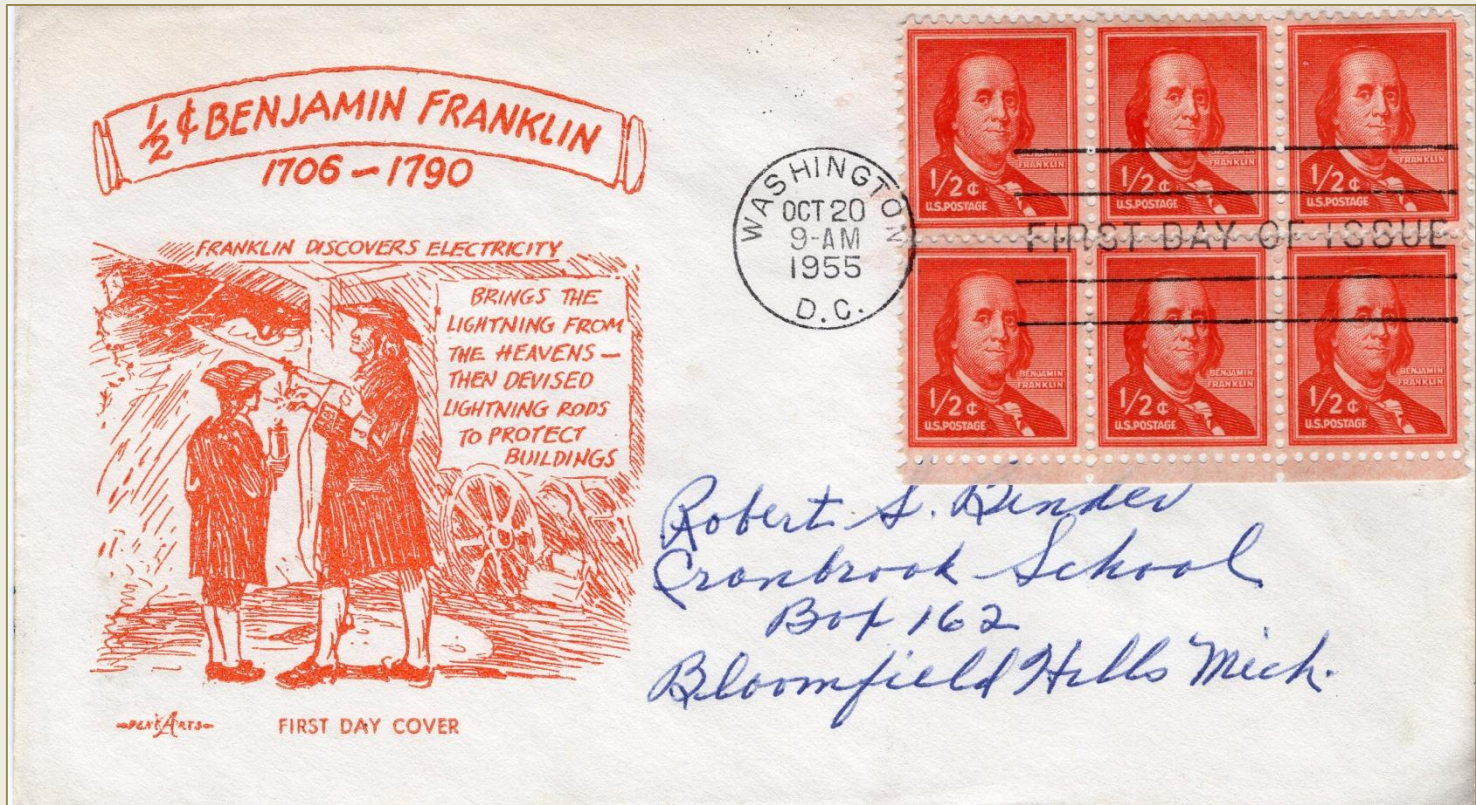 ½ ¢ BENJAMIN FRANKLIN
1706 – 1790
FRANKLIN DISCOVERS ELECTRICITY
BRINGS THE
LIGHTNING FROM
THE HEAVENS —
THEN DEVISED
LIGHTNING RODS
TO PROTECT
BUILDINGS
PENT ARTS
FIRST DAY COVER
WASHINGTON
OCT 20
9-AM
1955
D.C.
BENJAMIN
FRANKLIN
1/2 ¢
U.S.POSTAGE
BENJAMIN
FRANKLIN
1/2 ¢
U.S.POSTAGE
BENJAMIN
FRANKLIN
1/2 ¢
U.S.POSTAGE
FIRST DAY OF ISSUE
BENJAMIN
FRANKLIN
1/2 ¢
U.S.POSTAGE
BENJAMIN
FRANKLIN
1/2 ¢
U.S.POSTAGE
BENJAMIN
FRANKLIN
1/2 ¢
U.S.POSTAGE
Robert S. Binder
Cranbrook School
Box 162
Bloomfield Hills Mich.